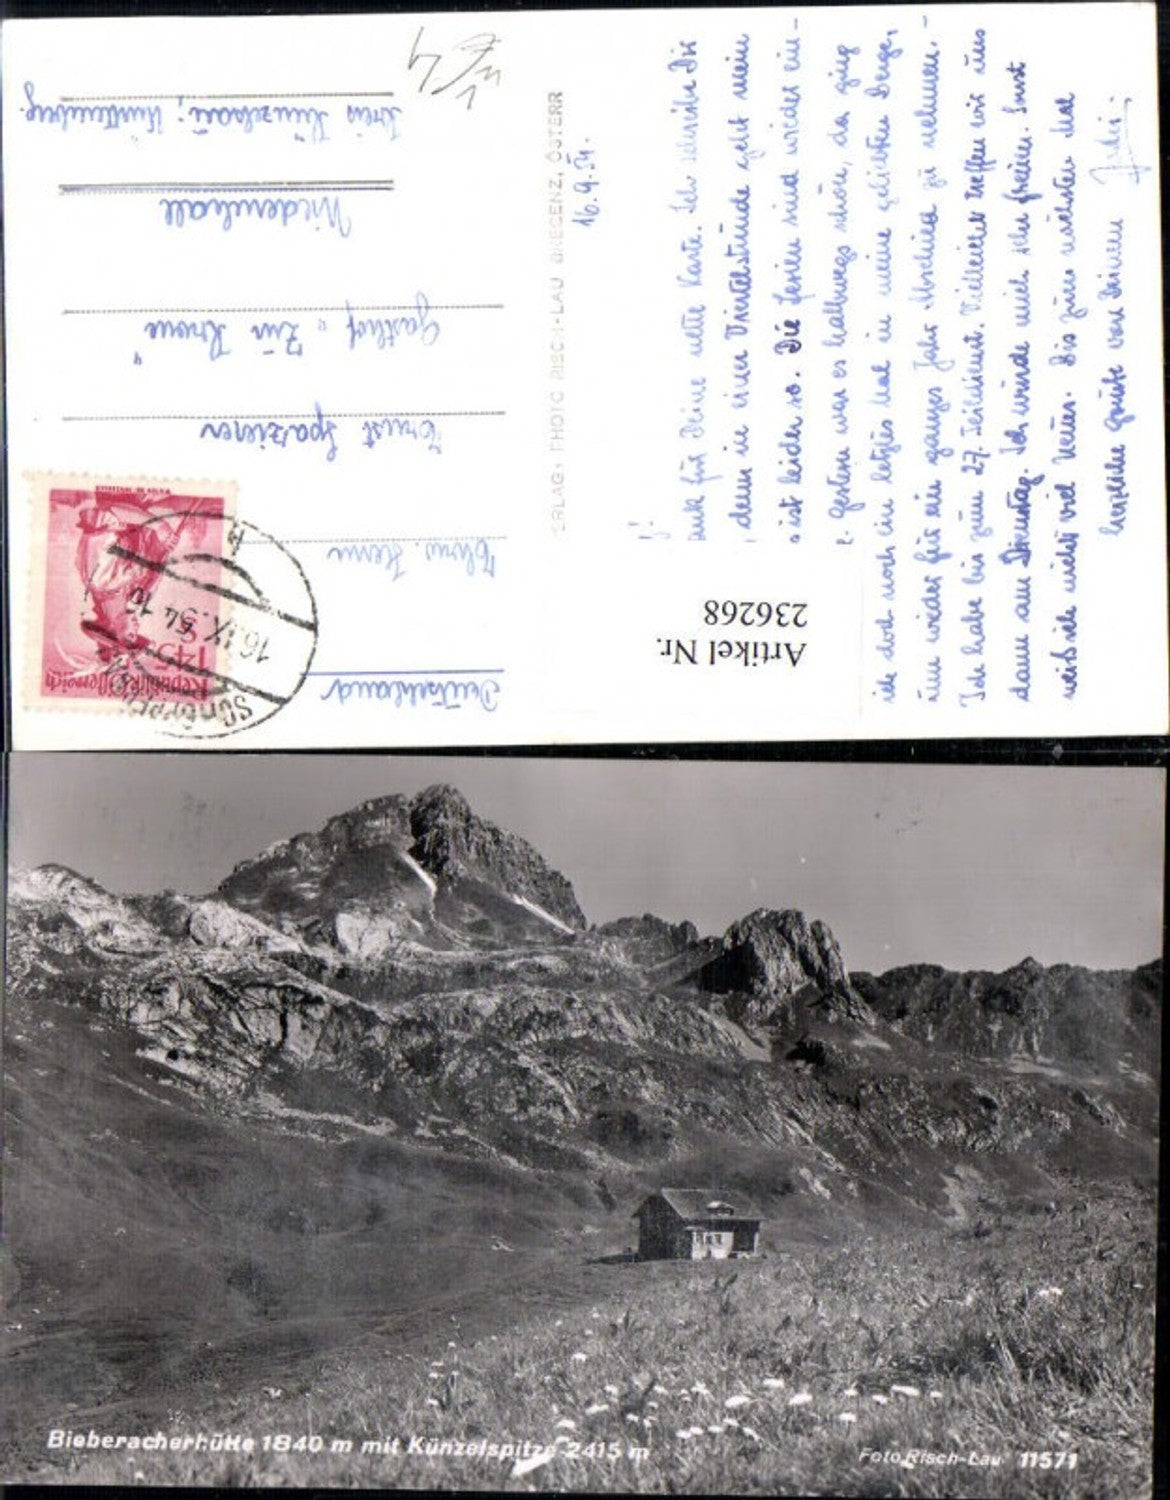 Deutschland
Herrn
Ernst Spazierer
Gasthof „Zur Krone"
Niedernhall
Kreis Künzelsau; Württemberg
Republik Österreich
1'45 S
16.IX.54 16
VERLAG: PHOTO RISCH-LAU BREGENZ, ÖSTERR
Artikel Nr.
236268
16.9.54.
Dank für Deine nette Karte. Ich schreibe Dir
, denn in einer Viertelstunde geht mein
ist leider so. Die Ferien sind wieder ein-
. Gestern war es halbwegs schön, da ging
ich doch noch ein letztes Mal in meine geliebten Berge,
um wieder für ein ganzes Jahr Abschied zu nehmen.-
Ich habe bis zum 27. Vielleicht treffen wir uns
dann am Dienstag. Ich würde mich sehr freuen. Sonst
weiß ich nicht viel Neues. Bis zum nächsten Mal
herzliche Grüße von Deinem
Bieberacherhütte 1840 m mit Künzelspitze 2415 m
Foto Risch-Lau 11571